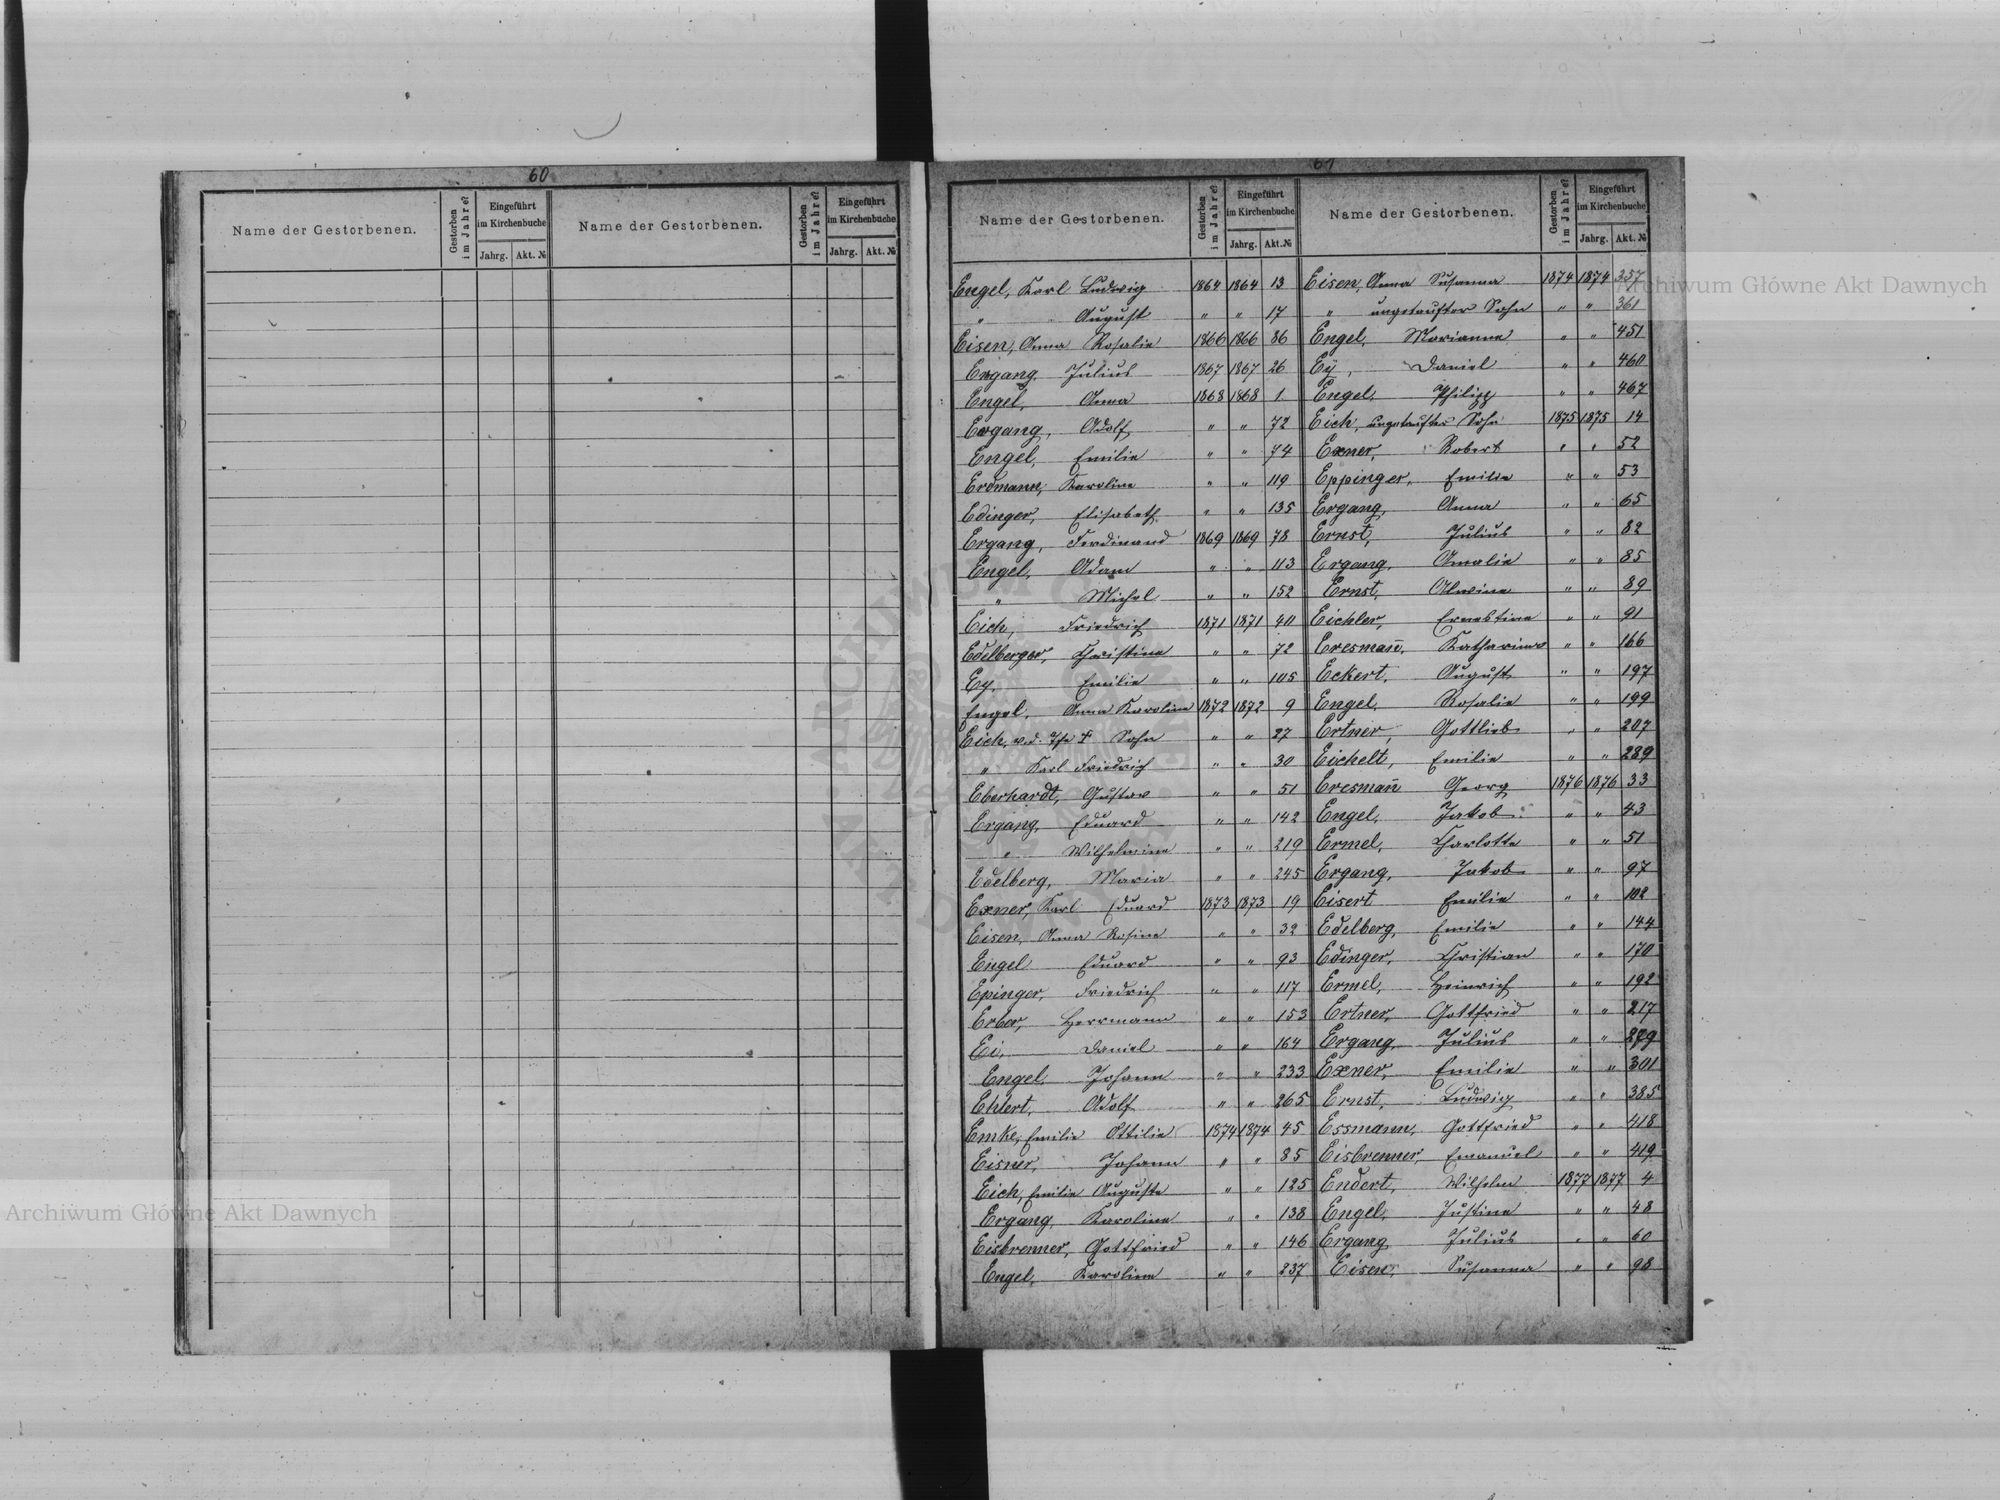 60
Name der Gestorbenen. Gestorben im Jahre? Eingeführt im Kirchenbuche Jahrg. Akt. № Name der Gestorbenen. Gestorben im Jahre? Eingeführt im Kirchenbuche Jahrg. Akt. №
61
Name der Gestorbenen. Gestorben im Jahre? Eingeführt im Kirchenbuche Jahrg. Akt. № Name der Gestorbenen. Gestorben im Jahre? Eingeführt im Kirchenbuche Jahrg. Akt. №
Engel, Karl Ludwig 1864 1864 13
" August " " 17
Eisen, Anna Rosalie 1866 1866 86
Ergang, Julius 1867 1867 26
Engel, Anna 1868 1868 1
Ergang, Adolf " " 72
Engel, Emilie " " 74
Erdmann, Karoline " " 119
Edinger, Elisabeth " " 135
Ergang, Ferdinand 1869 1869 78
Engel, Adam " " 113
" Michel " " 152
Eich, Friedrich 1871 1871 40
Edelberger, Christine " " 72
Ey, Emilie " " 105
Engel, Anna Karoline 1872 1872 9
Eich, v. d. Sohn " " 27
" Karl Friedrich " " 30
Eberhardt, Gustav " " 51
Ergang, Eduard " " 142
" Wilhelmine " " 219
Edelberg, Maria " " 245
Exner, Karl Eduard 1873 1873 19
Eisen, Anna Rosine " " 32
Engel Eduard " " 93
Epinger, Friedrich " " 117
Erber, Herrmann " " 153
Ei, Daniel " " 164
Engel, Johann " " 233
Ehlert, Adolf " " 265
Emke, Emilie Ottilie 1874 1874 45
Eisner, Johann " " 85
Eich, Emilie Auguste " " 125
Ergang, Karoline " " 138
Eisbrenner, Gottfried " " 146
Engel, Karoline " " 237
Eisen, Anna Susanna 1874 1874 357
" ungetaufter Sohn " " 361
Engel, Marianna " " 451
Ey, Daniel " " 460
Engel, Philipp " " 467
Eich, ungetaufter Sohn 1875 1875 14
Exner, Robert " " 52
Eppinger, Emilie " " 53
Ergang, Anna " " 65
Ernst, Julius " " 82
Ergang, Amalie " " 85
Ernst, Alwine " " 89
Eichler, Ernestine " " 91
Eresmañ, Katharina " " 166
Eckert, August " " 197
Engel, Rosalie " " 199
Ertner, Gottlieb " " 207
Eichelt, Emilie " " 289
Eresmañ Georg 1876 1876 33
Engel, Jakob " " 43
Ermel, Charlotte " " 51
Ergang, Jakob " " 97
Eisert Emilie " " 102
Edelberg, Emilie " " 144
Edinger, Christian " " 170
Ermel, Heinrich " " 192
Ertner, Gottfried " " 217
Ergang, Julius " " 279
Exner, Emilie " " 301
Ernst, Ludwig " " 385
Essmann, Gottfried " " 418
Eisbrenner, Emanuel " " 419
Endert, Wilhelm 1877 1877 4
Engel, Justine " " 48
Ergang Julius " " 60
Eisen, Susanna " " 98
Archiwum Główne Akt Dawnych
Archiwum Główne Akt Dawnych